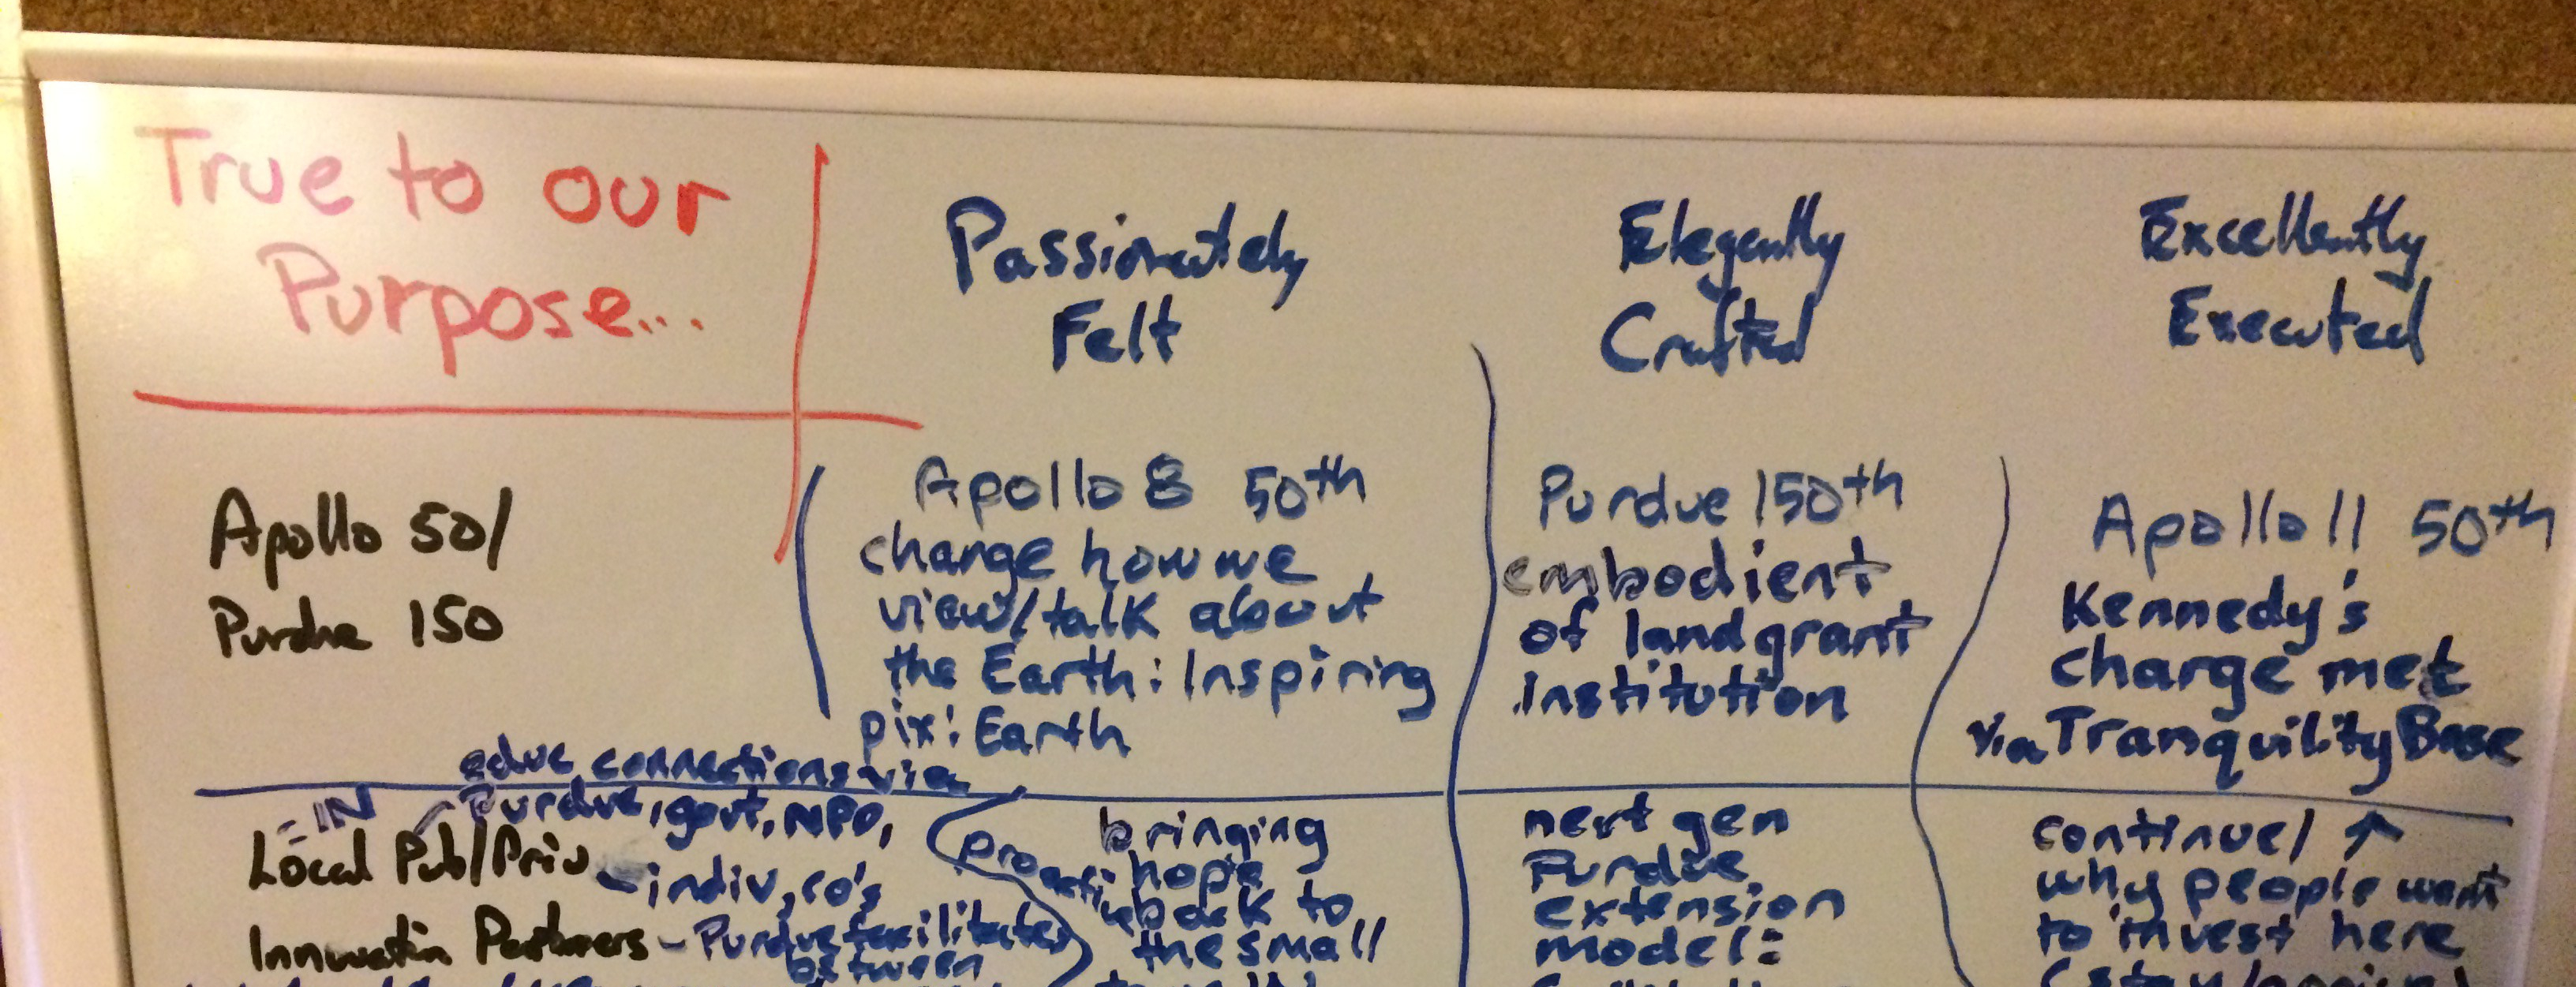 True to our
Purpose...
Passionately
Felt
Elegantly
Crafted
Excellently
Executed
Apollo 50/
Purdue 150
Apollo 8 50th
change how we
view/talk about
the Earth: Inspiring
pix: Earth
Purdue 150th
embodient
of land grant
institution
Apollo 11 50th
Kennedy's
charge met
via Tranquility Base
educ connections via
- IN
Purdue, govt, NPO,
Local Pub/Priv
- indiv, co's
Innovation Partners
- Purdue facilitates
between
proactive
bringing
hope
back to
the small
next gen
Purdue
extension
model:
continue/ ↑
why people want
to invest here